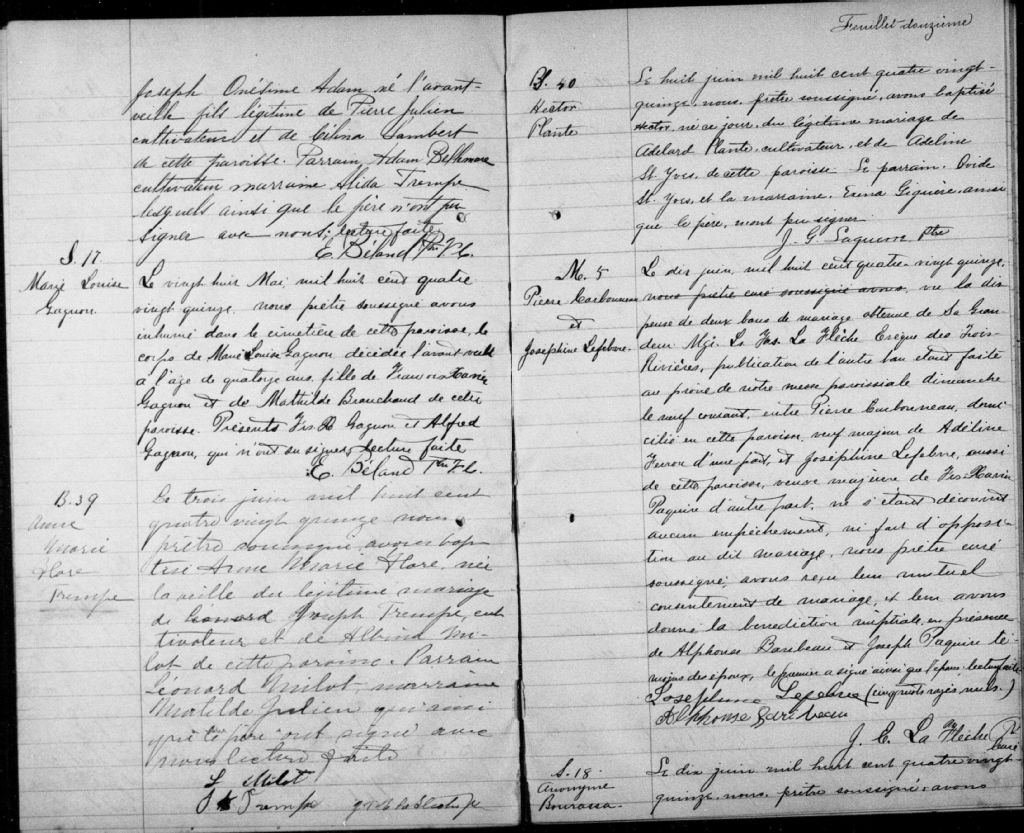 Joseph Onésime Adam né l'avant-
veille fils légitime de Pierre Julien
cultivateur et de Célina Lambert
de cette paroisse. Parrain, Adam
cultivateur marraine Alida Trempe
lesquels ainsi que le père n'ont pu
signer avec nous; lecture faite
E. Béland Ptre V.
S. 17.
Marie Louise
Gagnon.
Le vingt huit Mai, mil huit cent quatre
vingt quinze, nous prêtre soussigné avons
inhumé dans le cimetière de cette paroisse, le
corps de Marie Louise Gagnon décédée l'avant veille
à l'âge de quatorze ans, fille de François Xavier
Gagnon et de Mathilde Branchaud de cette
paroisse. Présents Frs X Gagnon et Alfred
Gagnon, qui n'ont su signer, lecture faite
E. Béland Ptre V.
B. 39
Anne
Marie
Flore
Trempe
Le trois juin mil huit cent
quatre vingt quinze nous
prêtre soussigné, avons bap
tisé Anne Marie Flore, née
la veille du légitime mariage
de Léonard Joseph Trempe, cul
tivateur et de Albina Mi-
lot de cette paroisse. Parrain
Léonard Milot, marraine
Matilde Julien qui ainsi
que le père ont signé avec
nous lecture faite
L Milot
Trempe
Feuillet douzième
B. 40
Hector
Plante
Le huit juin mil huit cent quatre vingt-
quinze, nous, prêtre soussigné, avons baptisé
Hector, né ce jour, du légitime mariage de
Adelard Plante, cultivateur, et de Adeline
St. Yves, de cette paroisse Le parrain, Ovide
St. Yves, et la marraine, Exina Giguère, ainsi
que le père, n'ont pu signer.
J. G. Ptre
M. 5
Pierre Carbonneau
et
Josephine Lefebvre.
Le dix juin, mil huit cent quatre-vingt quinze,
nous prêtre curé soussigné avons, vu la dis
pense de deux bans de mariage obtenue de Sa Gran
deur Mgr. Ls. Frs. La Flèche Evêque des Trois-
Rivières, publication de l'autre ban étant faite
au prône de notre messe paroissiale dimanche
le neuf courant, entre Pierre Carbonneau, domi
cilié en cette paroisse, veuf majeur de Adéline
Ferron d'une part, et Joséphine Lefebvre, aussi
de cette paroisse, veuve majeure de Frs-Xavier
Paquire d'autre part, ne s'étant découvert
aucun empêchement, ni fait d'opposi
tion au dit mariage, nous prêtre curé
soussigné, avons reçu leur mutuel
consentement de mariage, et leur avons
donné la bénédiction nuptiale, en présence
de Alphonse Baribeau et Joseph Paquire té-
moins des époux, le premier a signé ainsi que l'épouse lecture faite
Josephine Lefebvre (cinq mots rayés nuls.)
Alphonse Baribeau
J. E. La Flèche Ptre
curé
S. 18.
Anonyme
Bourassa.
Le dix juin mil huit cent quatre vingt
quinze, nous, prêtre soussigné, avons